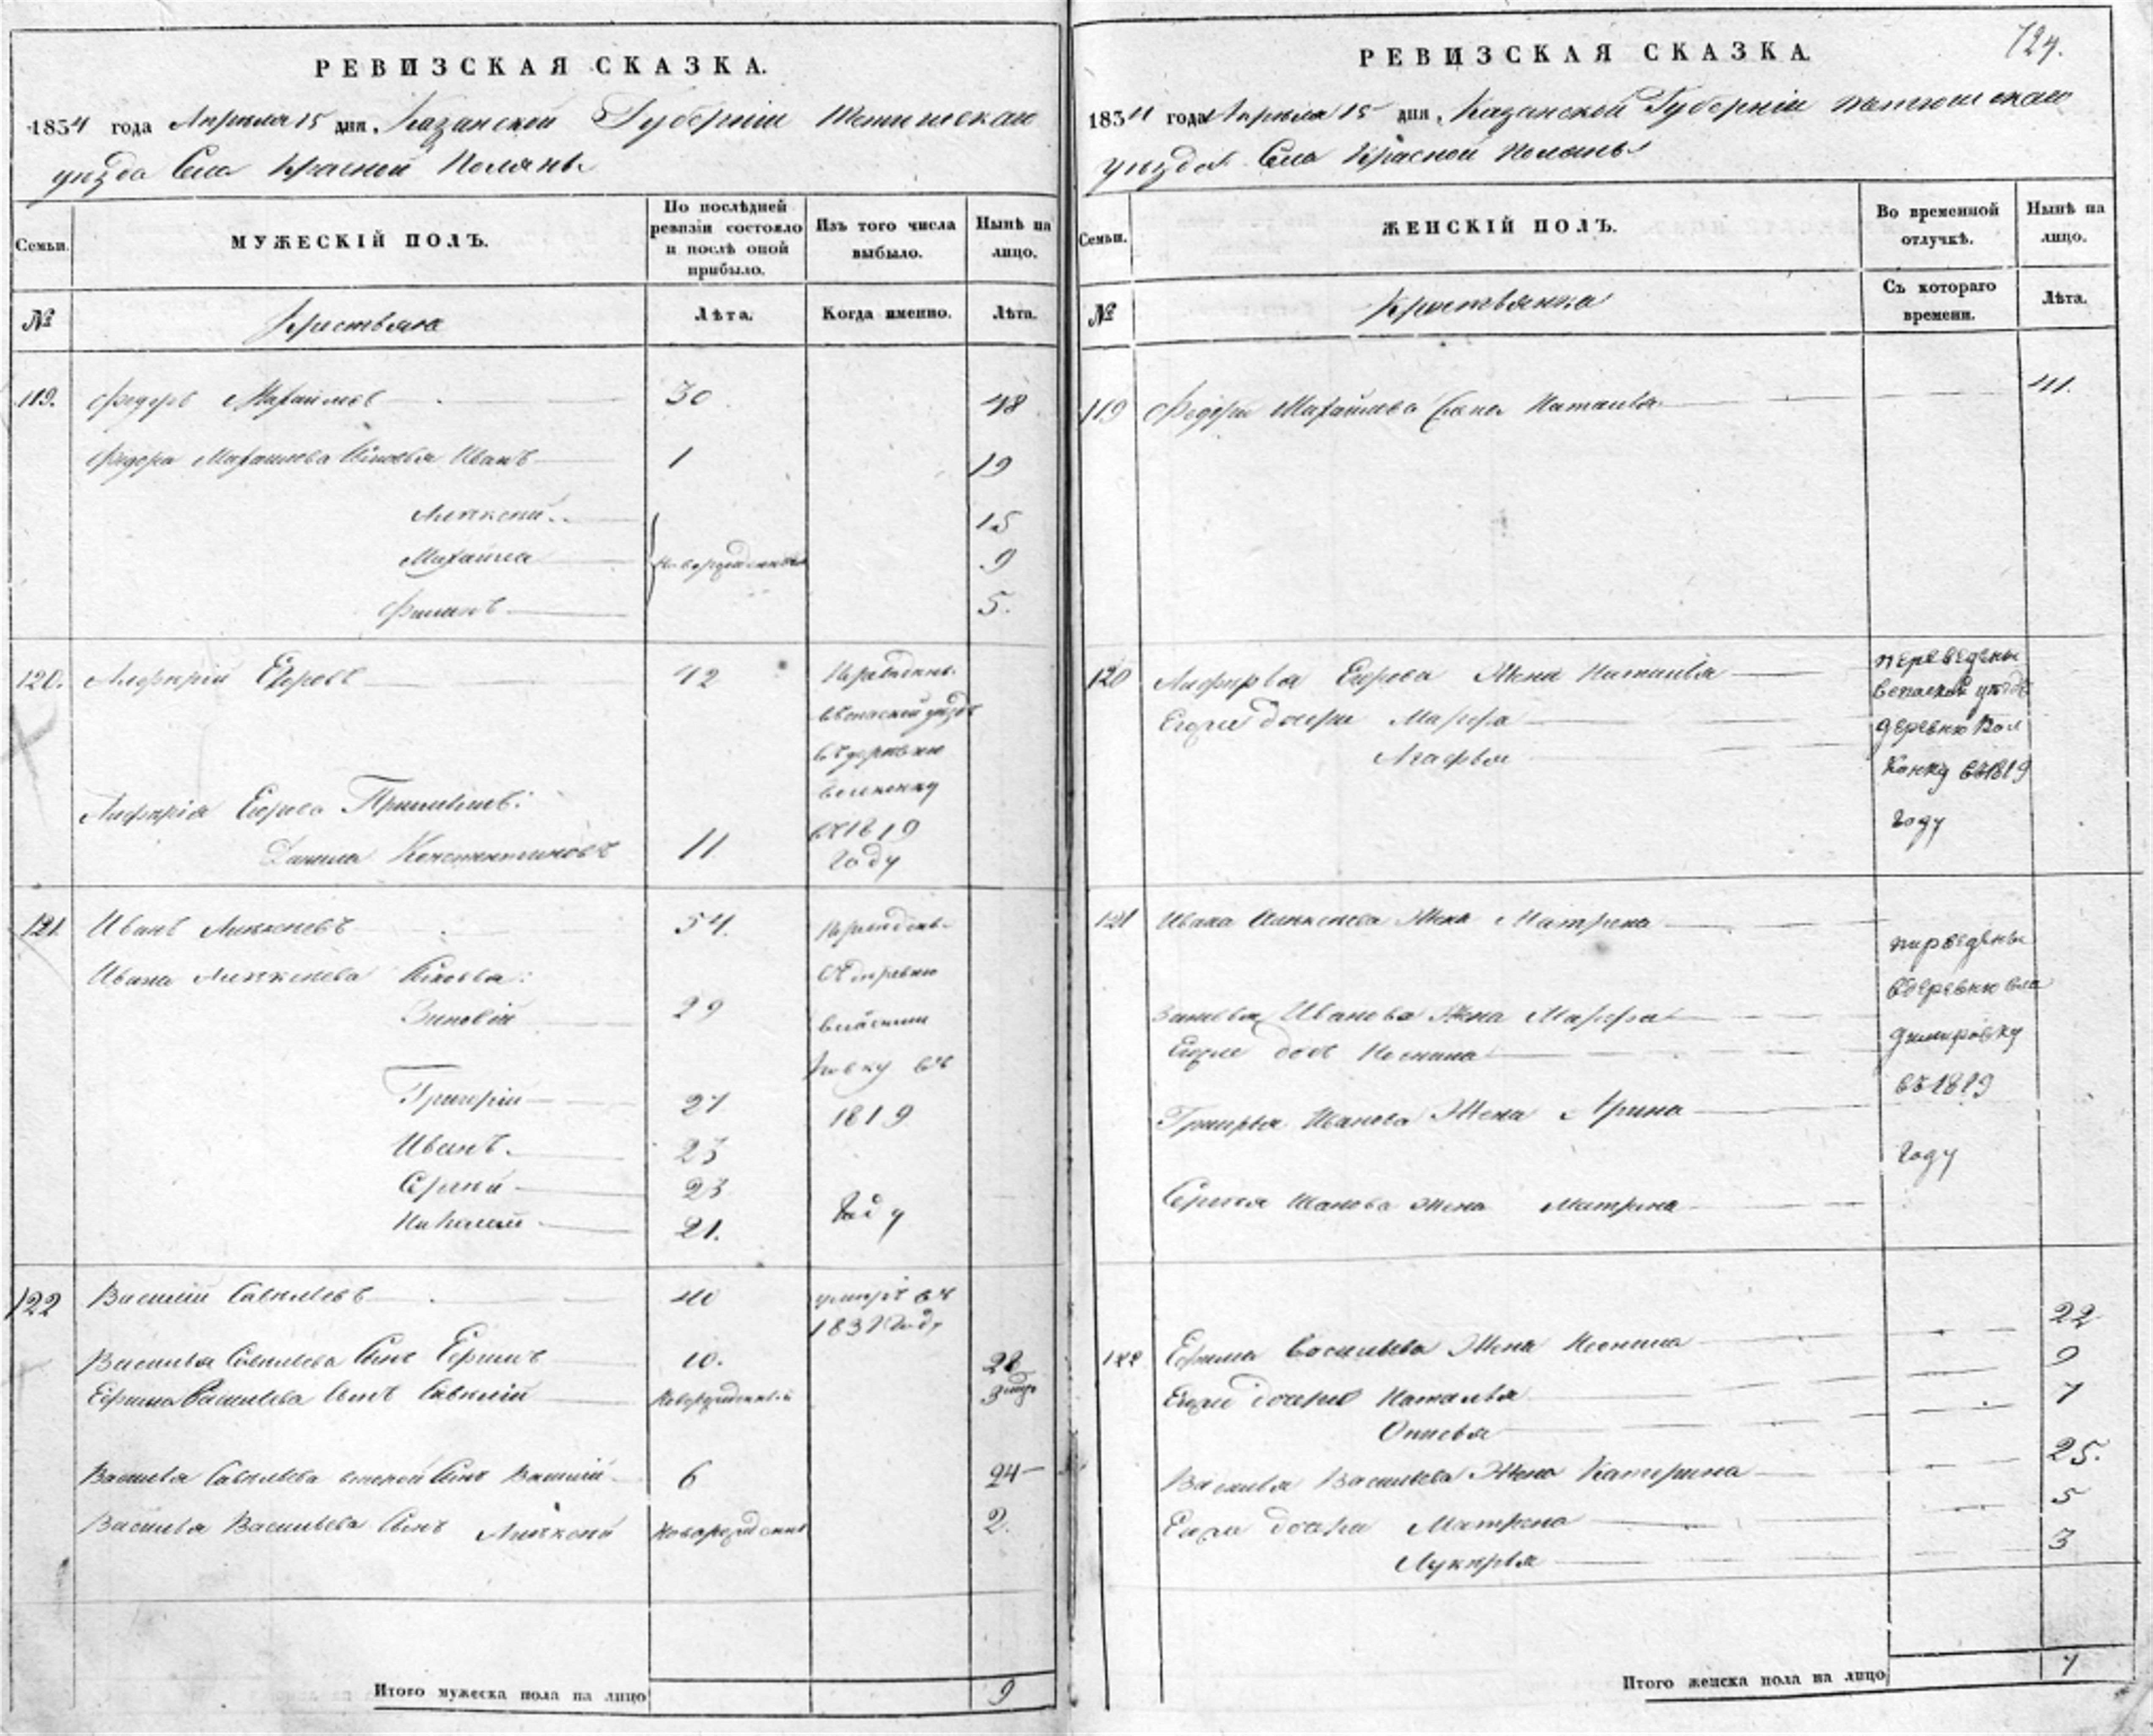 РЕВИЗСКАЯ СКАЗКА.
1834 года Апреля 15 дня, Казанской Губерніи Тетюшскаго
уезда Села Красной Поляны
Семьи.
МУЖЕСКІЙ ПОЛЪ.
По послѣдней ревизіи состояло и послѣ оной прибыло.
Изъ того числа выбыло.
Нынѣ на лицо.
№
Крестьяне
Лѣта.
Когда именно.
Лѣта.
119. Федоръ Михайловъ 30 48
Федора Михайлова Сыновья Иванъ 1 19
Алексей 15
Михайла Новорожденные 9
Филипъ 5.
120. Егоровъ 42 Переведены
въ спаской уездъ
въ деревню
Егорова Приимышъ:
въ 1819
Данила Константиновъ 11 Году
121. Иванъ Алексеевъ 54. Переведены
Ивана Алексеева Сыновья: въ деревню
Зиновей 29
въ
Григорій 27 1819
Иванъ 25
Сергей 23 Году
Николай 21.
122 Василий Савельевъ 40 умеръ въ
183 Году
Василья Савельева Сынъ Ефимъ 10. 28
Ефима Васильева Сынъ Савелій Новорожденный 3
Василья Савельева второй Сынъ Василий 6 24
Василья Васильева Сынъ Алексей Новорожденный 2.
Итого мужеска пола на лицо 9
РЕВИЗСКАЯ СКАЗКА.
724.
1834 года Апреля 15 дня, Казанской Губерніи Тетюшскаго
уезда Села Красной Поляны
Семьи.
ЖЕНСКІЙ ПОЛЪ.
Во временной отлучкѣ.
Нынѣ на лицо.
№
Крестьянка
Съ котораго времени.
Лѣта.
119 Федора Михайлова Жена Наталья 41.
120 Егорова Жена Наталья переведены
въ спаской уездъ
Егоже дочери Марфа деревню
Агафья въ 1819
Году
121 Ивана Алексеева Жена Матрена
переведены
въ деревню вла
Зиновья Иванова Жена Марфа димировку
Егоже дочь
въ 1819
Григорья Иванова Жена Арина
Году
Сергея Иванова Жена Матрена
122 Ефима Васильева Жена 22
Егоже дочери Наталья 9
7
Василья Васильева Жена Катерина 25.
Егоже дочери Матрена 5
Лукерья 3
Итого женска пола на лицо 7